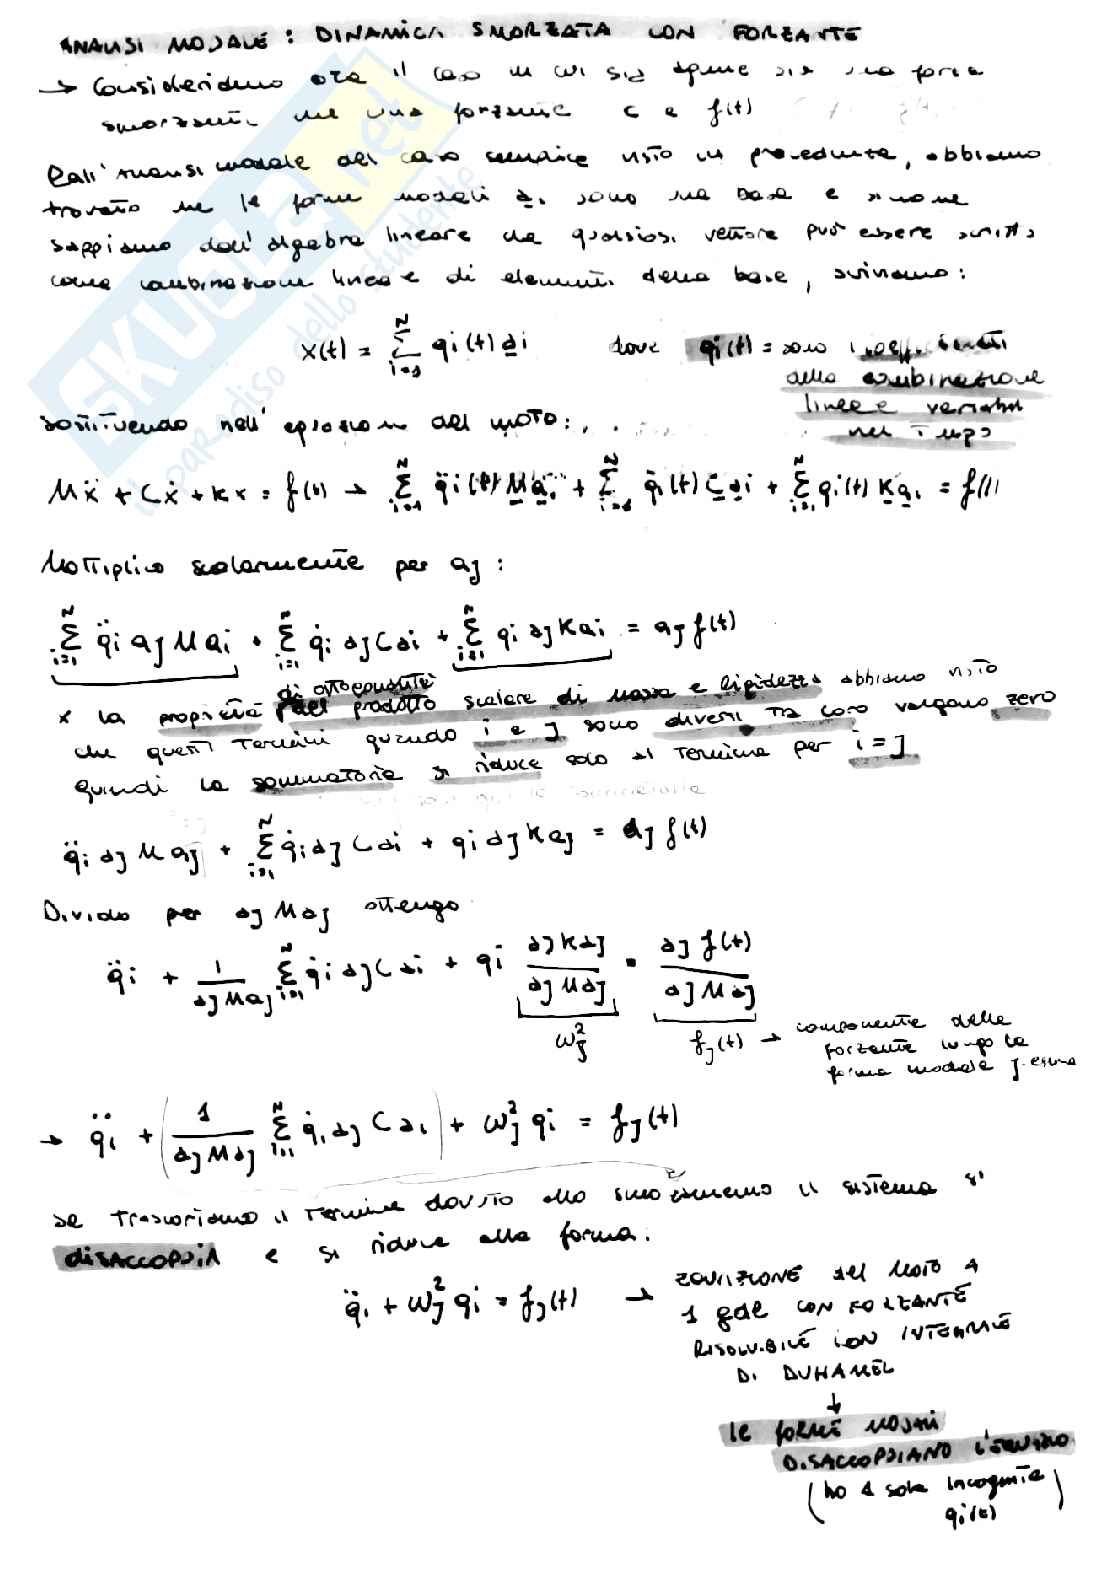 ANALISI MODALE : DINAMICA SMORZATA CON FORZANTE
→ Consideriamo ora il caso in cui sia agente sia una forza
smorzante che una forzante C e f(t)
Dall'analisi modale del caso semplice visto in precedenza, abbiamo
trovato che le forme modali a̲i sono una base e siccome
sappiamo dall'algebra lineare che qualsiasi vettore può essere scritto
come combinazione lineare di elementi della base, scriviamo:
x(t) = Σ_{i=1}^{N} qi(t) a̲i dove qi(t) = sono i coefficienti
della combinazione
lineare variabili
nel tempo
sostituendo nell'equazione del moto:
Mẍ + Cẋ + Kx = f(t) → Σ_{i=1}^{N} q̈i(t) M̲a̲i + Σ_{i=1}^{N} q̇i(t) C̲a̲i + Σ_{i=1}^{N} qi(t) K̲a̲i = f(t)
Moltiplico scalarmente per aj :
Σ_{i=1}^{N} q̈i aj M ai + Σ_{i=1}^{N} q̇i aj C ai + Σ_{i=1}^{N} qi aj K ai = aj f(t)
di ortogonalità
x la proprietà del prodotto scalare di massa e rigidezza abbiamo visto
che questi termini quando i e j sono diversi tra loro vengono zero
quindi la sommatoria si riduce solo al termine per i = j
q̈i aj M aj + Σ_{i=1}^{N} q̇i aj C ai + qi aj K aj = aj f(t)
Divido per aj M aj ottengo
q̈i + 1/(aj M aj) Σ_{i=1}^{N} q̇i aj C ai + qi (aj K aj)/(aj M aj) = (aj f(t))/(aj M aj)
ωj² fj(t) → componente della
forzante lungo la
forma modale j-esima
→ q̈i + (1/(aj M aj) Σ_{i=1}^{N} q̇i aj C ai) + ωj² qi = fj(t)
se trascuriamo il termine dovuto allo smorzamento il sistema si
DISACCOPPIA e si riduce alla forma:
q̈i + ωj² qi = fj(t) → EQUAZIONE DEL MOTO A
1 gdl CON FORZANTE
RISOLVIBILE CON INTEGRALE
DI DUHAMEL
↓
le FORME MODALI
DISACCOPPIANO
(ho 1 sola incognita
qi(t))
SKUOLA.net
il paradiso dello studente